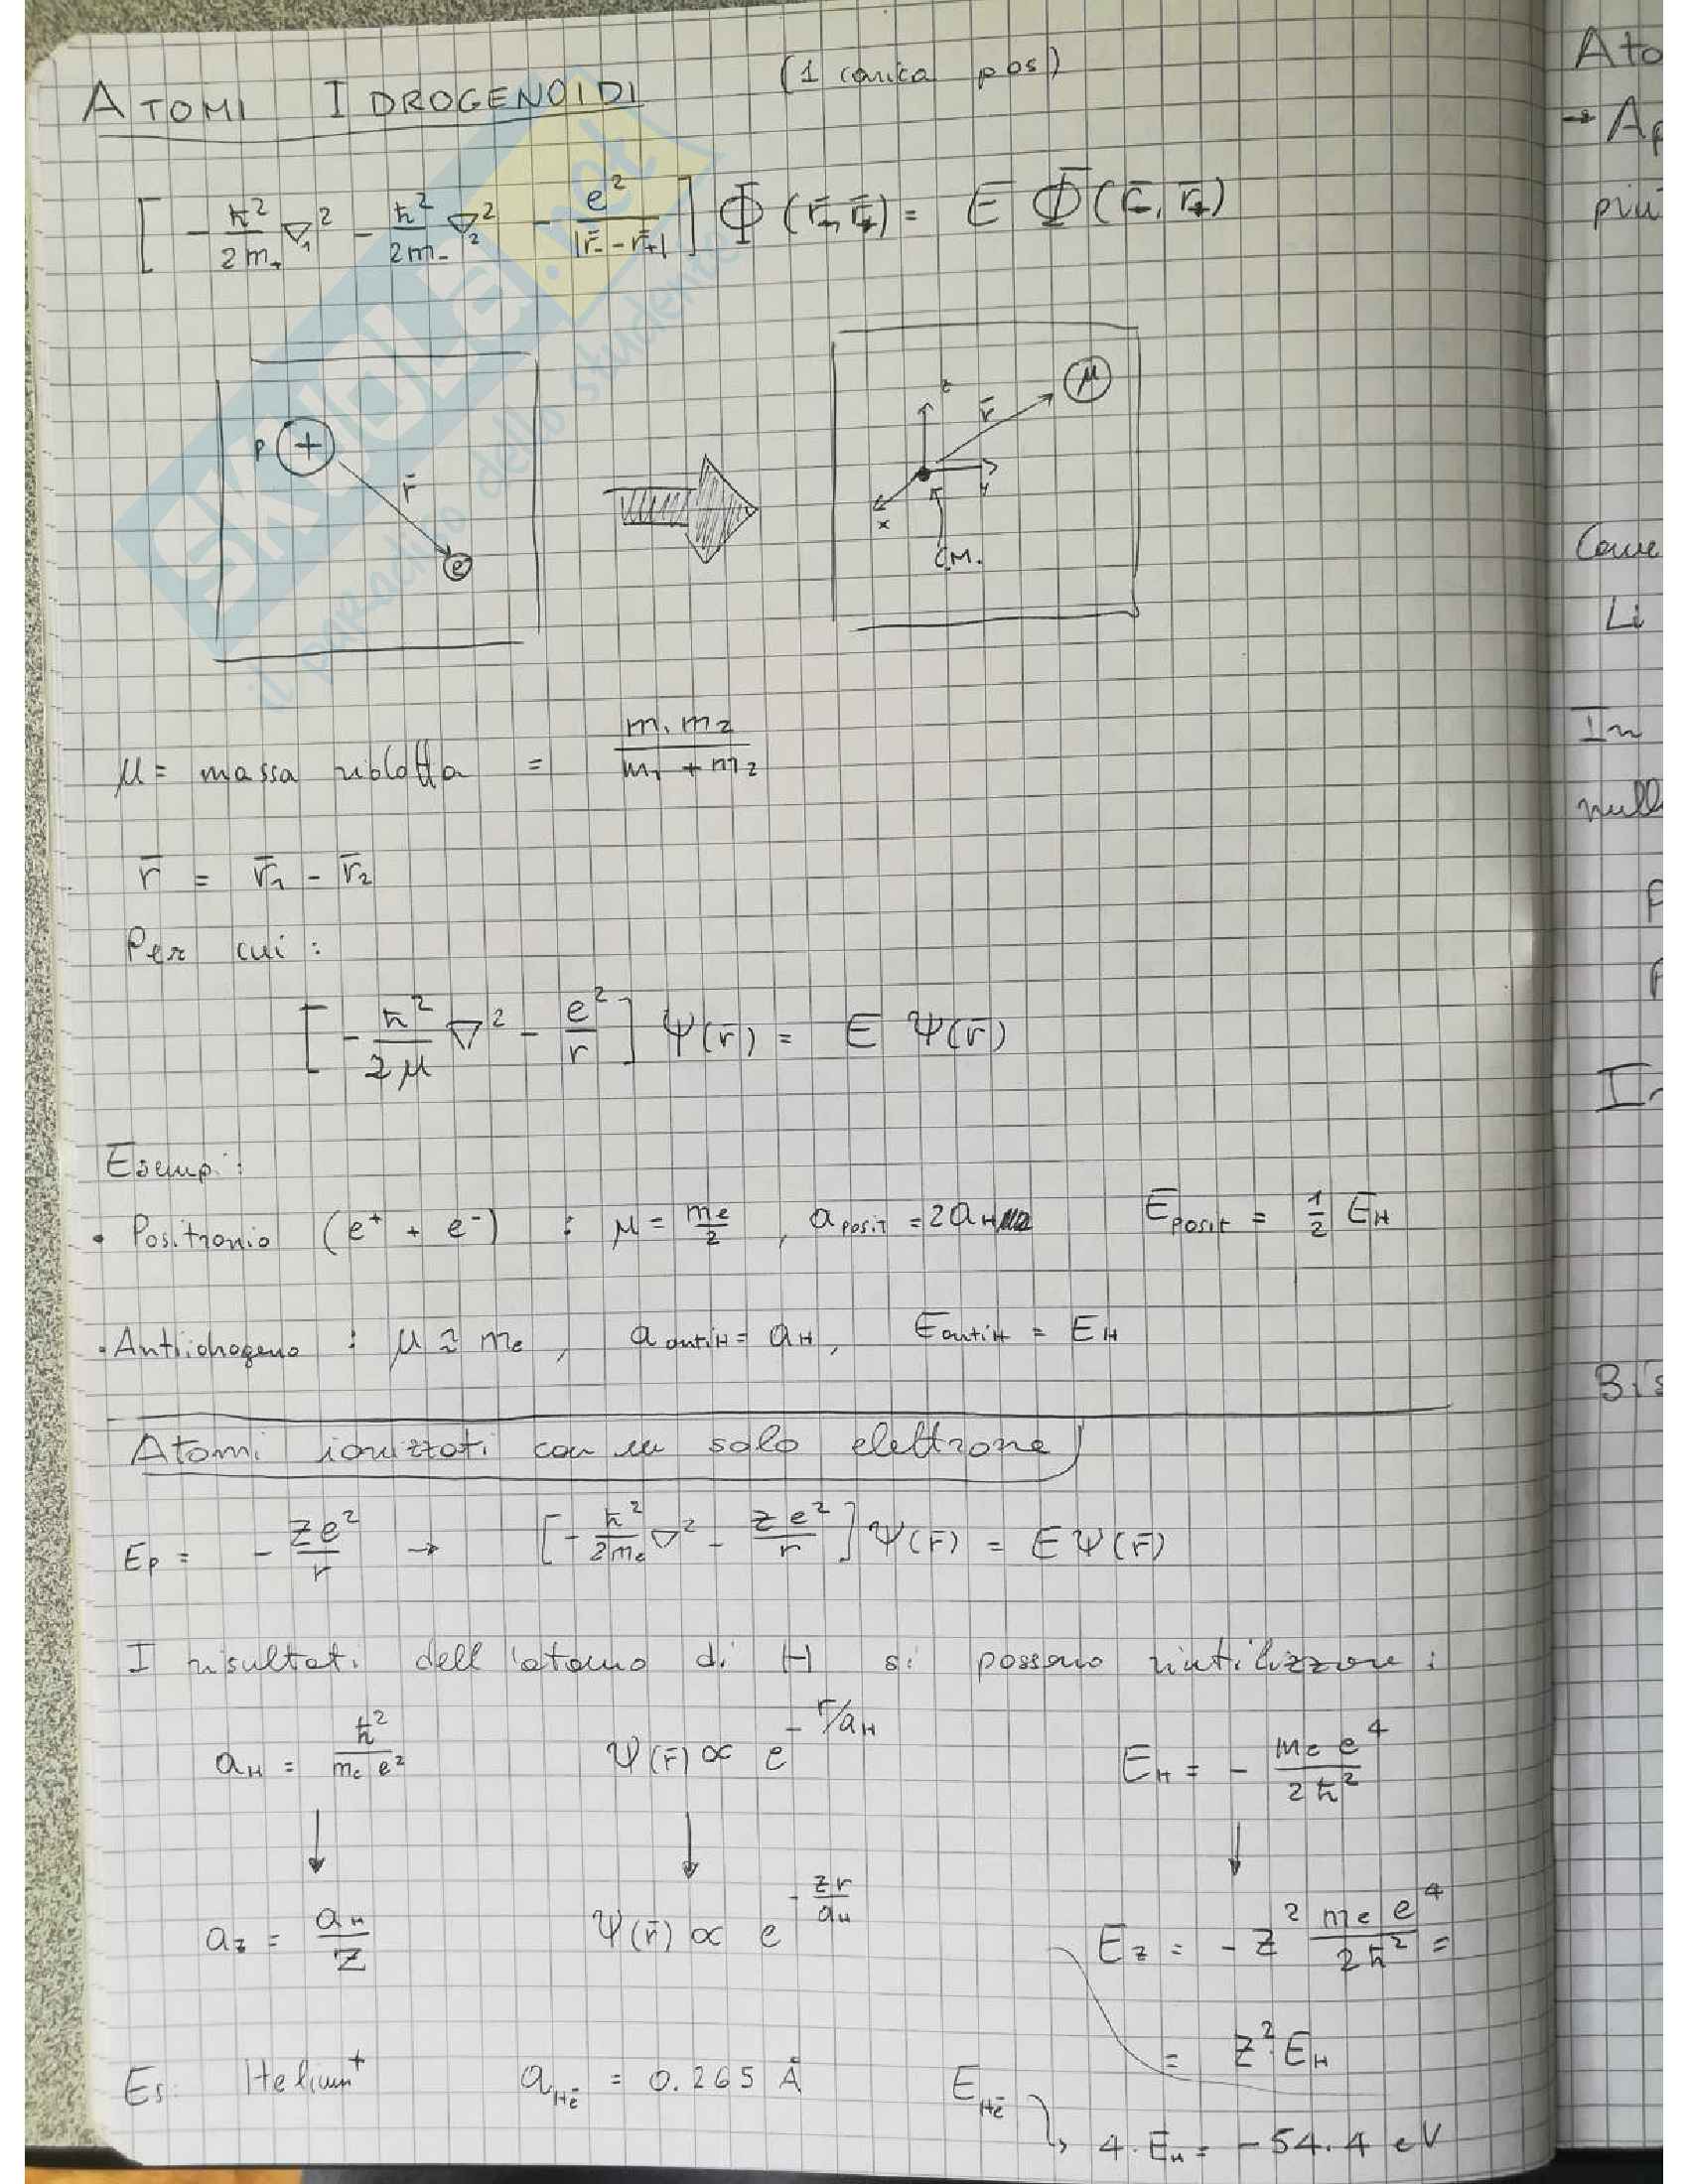 ATOMI IDROGENOIDI (1 carica pos)
[ -ħ²/2m₊ ∇₁² - ħ²/2m₋ ∇₂² - e²/|r̄₋ - r̄₊| ] Φ (r̄₋, r̄₊) = E Φ (r̄₋, r̄₊)
p + r̄ e
z r̄ μ y x C.M.
μ = massa ridotta = m₁ m₂ / m₁ + m₂
r̄ = r̄₁ - r̄₂
Per cui :
[ -ħ²/2μ ∇² - e²/r ] Ψ(r̄) = E Ψ(r̄)
Esempi :
• Positronio (e⁺ + e⁻) : μ = me/2 , a posit = 2aH E posit = 1/2 EH
• Antiidrogeno : μ ≈ me , a antiH = aH , E antiH = EH
Atomi ionizzati con un solo elettrone
Ep = - Ze²/r → [ -ħ²/2me ∇² - Ze²/r ] Ψ(r̄) = E Ψ(r̄)
I risultati dell'atomo di H si possono riutilizzare :
aH = ħ²/me e² Ψ(r̄) ∝ e^-r/aH EH = - me e⁴/2ħ²
↓ ↓ ↓
az = aH/Z Ψ(r̄) ∝ e^-Zr/aH Ez = - Z² me e⁴/2ħ² =
= Z² · EH
Es: Helium⁺ aHe = 0.265 Å EHe
4 · EH = -54.4 eV
Ato
→ Ap
più
Come
Li
In
null
P
P
In
Bis
SKUOLA.net
il paradiso dello studente